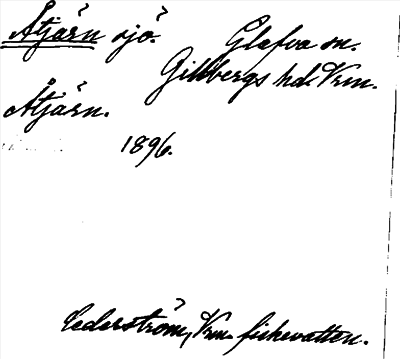 Åtjärn sjö. Glafva sn.
Gillbergs hd. Vrm.
Åtjärn.
1896.
Cederström, Vrm. fiskevatten.